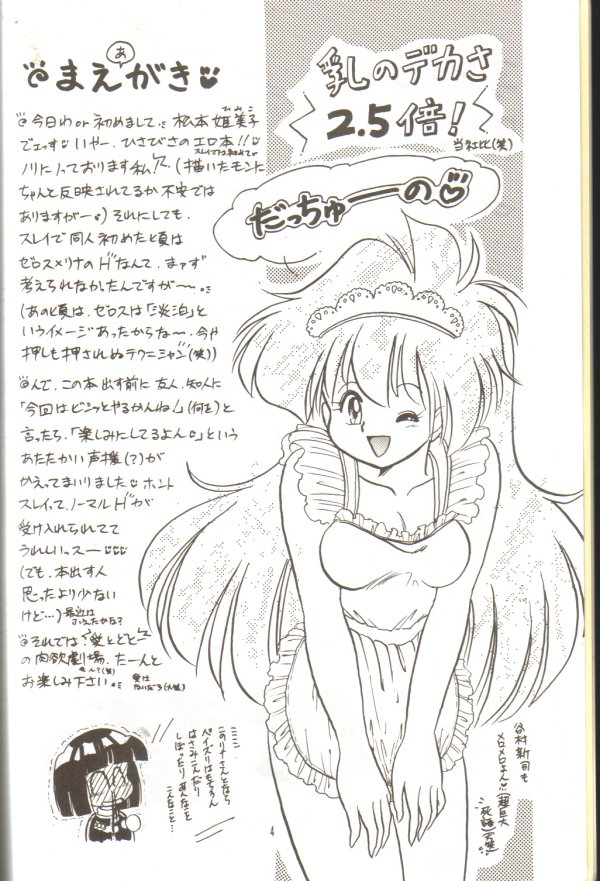 まえがき
あ
今日わor初めまして。松本姫美子
ひみこ
でェっす。いやー、ひさびさのエロ本!!
スレイでは初めて
ノリにノっております私。(描いたモンに
ちゃんと反映されてるか不安では
ありますがー)それにしても、
スレイで同人初めた頃は
ゼロス×リナのHなんて、まァず
考えられなかったんですが〜。
(あの頃は、ゼロスは「淡泊」と
いうイメージあったからな〜。今や
押しも押されぬテクニシャン(笑))
んで、この本出す前に友人、知人に
「今回はビシッとやるかんね!」(何を)と
言ったら、「楽しみにしてるよん」という
あたたかい声援(?)が
かえってまいりました。ホント
スレイって、ノーマルHが
受け入れられてて
うれしいっスー
(でも、本出す人
思ったより少ない
けど…)最近は
ふえたかな?
それでは、愛とどと
の肉欲劇場、たーんと
お楽しみ下さい。
愛は
ないだろ(大笑)
乳しのデカさ
2.5倍!
当社比(笑)
だっちゅーの
ミミン
このリナさんとなら
パイズリはもちろん
はさみこんだり
しぼったりあんなこと
こんなこと…
谷村新司も
メロメロよん(超巨大
死語)大笑
4